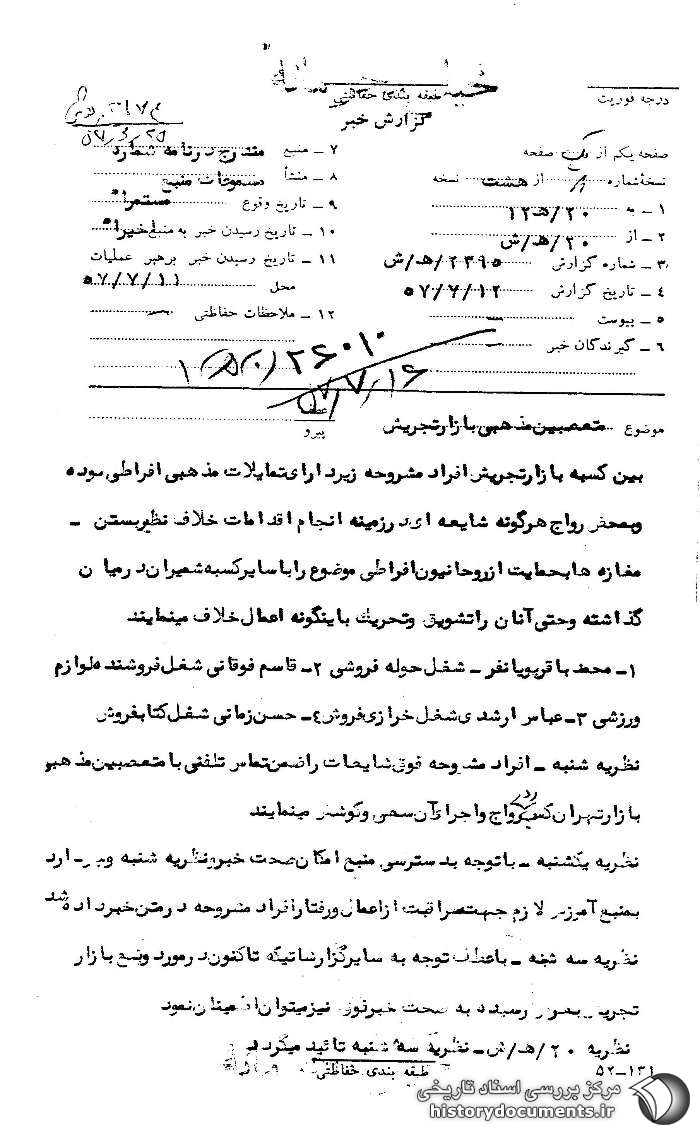 طبقه بندی حفاظتی
گزارش خبر
درجه فوریت
صفحه یکم از یک صفحه
نسخه شماره از هشت نسخه
۱ - به ۲۰/هـ۱۲
۲ - از ۲۰/هـ/ش
۳ - شماره گزارش ۲۳۹۵/هـ/ش
۴ - تاریخ گزارش ۵۷/۷/۱۲
۵ - پیوست —
۶ - گیرندگان خبر —
۷ - منبع مندرج در نامه شماره
۸ - منشأ مسموعات منبع
۹ - تاریخ وقوع مستمرا"
۱۰ - تاریخ رسیدن خبر به منبع اخیرا"
۱۱ - تاریخ رسیدن خبر برهبر عملیات
محل ۵۷/۷/۱۱
۱۲ - ملاحظات حفاظتی —
۲۶۰۱۰
۵۷/۷/۱۶
موضوع متعصبین مذهبی بازار تجریش
عطف
پیرو
بین کسبه بازار تجریش افراد مشروحه زیر دارای تمایلات مذهبی افراطی بوده
و بمحض رواج هرگونه شایعه ای در زمینه انجام اقدامات خلاف نظیر بستن -
مغازه ها بحمایت از روحانیون افراطی موضوع را با سایر کسبه شمیران در میان
گذاشته و حتی آنان را تشویق و تحریک با ینگونه اعمال خلاف مینمایند
۱- محمد باقر پویانفر - شغل حوله فروشی ۲- قاسم فوقانی شغل فروشنده لوازم
ورزشی ۳- عباس ارشدی شغل خرازی فروش ۴- حسن زمانی شغل کتابفروش
نظریه شنبه - افراد مشروحه فوق شایعات را ضمن تماس تلفنی با متعصبین مذهبی
بازار تهران کسب و در رواج و اجرای آن سعی و کوشش مینمایند
نظریه یکشنبه - با توجه بدسترسی منبع امکان صحت خبر و نظریه شنبه وجود دارد
بمنبع آموزش لازم جهت مراقبت از اعمال و رفتار افراد مشروحه در متن خبر داده شد
نظریه سه شنبه - با عطف توجه به سایر گزارشاتیکه تاکنون در مورد وضع بازار
تجریش بمرکز رسیده به صحت خبر فوق نیز میتوان اطمینان نمود
نظریه ۲۰/هـ/ش - نظریه سه شنبه تائید میگردد
طبقه بندی حفاظتی
۵۲-۱۳۱
مرکز بررسی اسناد تاریخی
historydocuments.ir